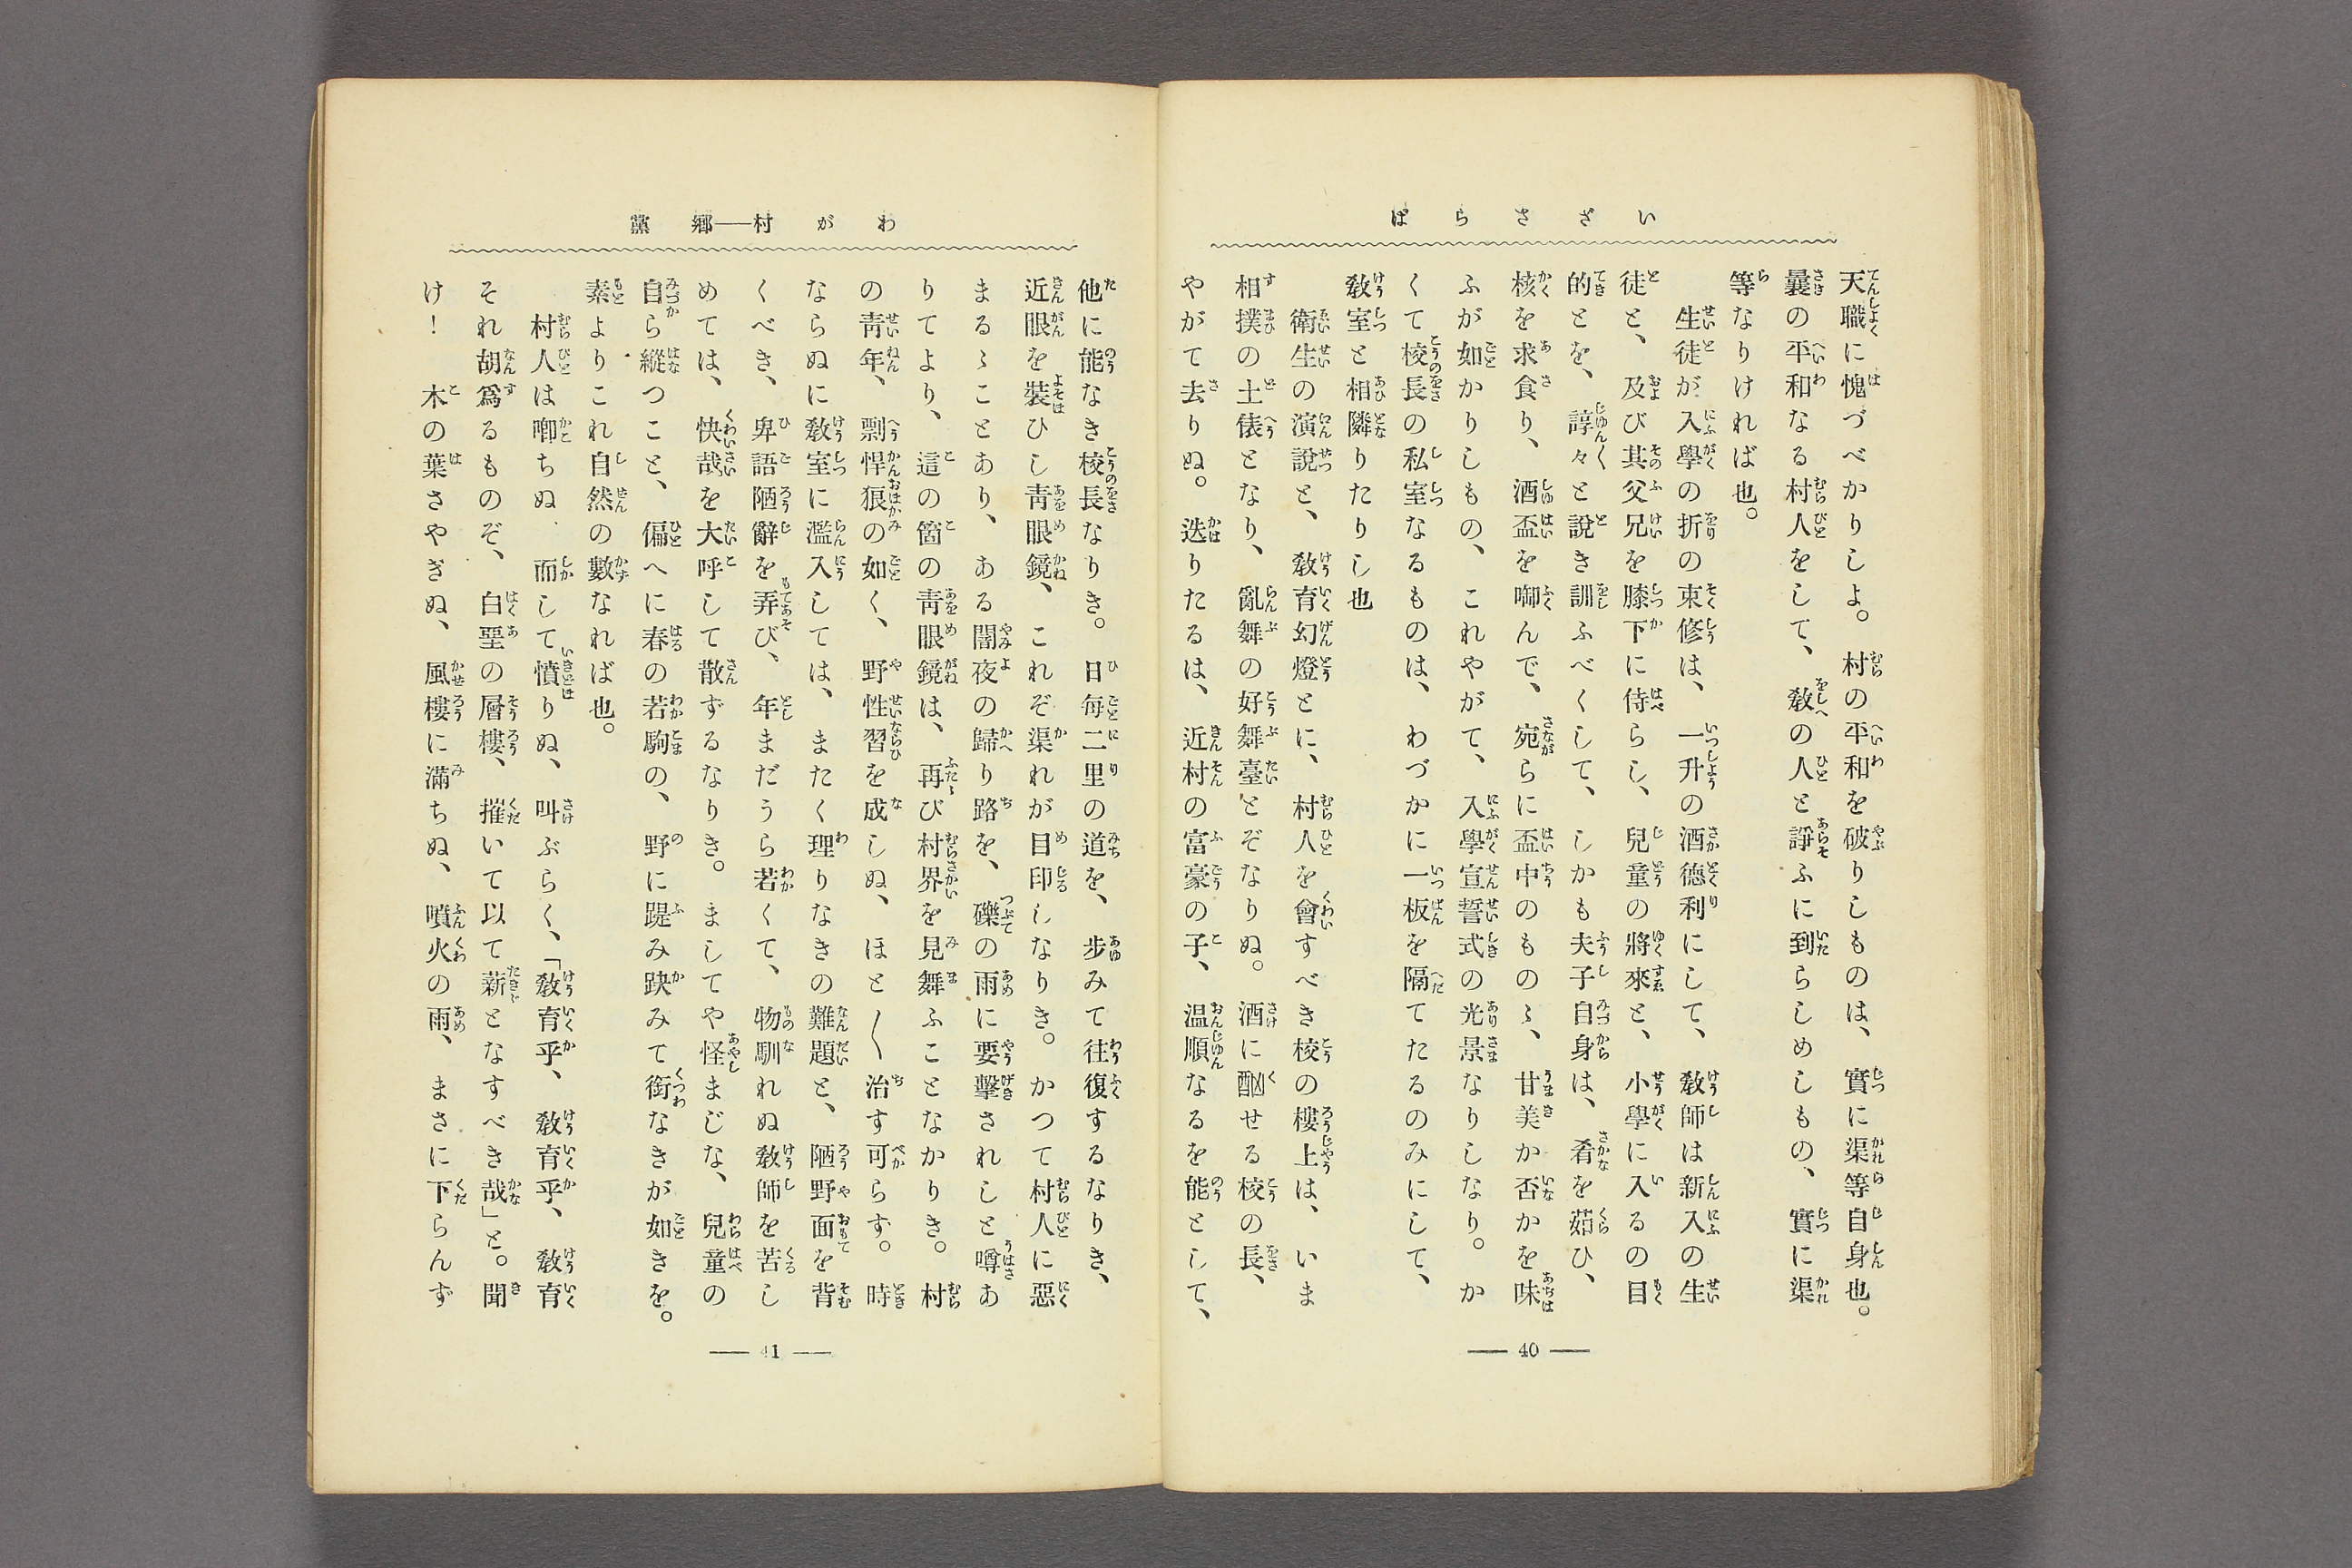 いざさらば
天職に愧づべかりしよ。村の平和を破りしものは、實に渠等自身也。
曩の平和なる村人をして、敎の人と諍ふに到らしめしもの、實に渠
等なりければ也。
生徒が入學の折の束修は、一升の酒德利にして、敎師は新入の生
徒と、及び其父兄を膝下に侍らし、兒童の將來と、小學に入るの目
的とを、諄々と說き訓ふべくして、しかも夫子自身は、肴を茹ひ、
核を求食り、酒盃を啣んで、宛らに盃中のものゝ、甘美か否かを味
ふが如かりしもの、これやがて、入學宣誓式の光景なりしなり。か
くて校長の私室なるものは、わづかに一板を隔てたるのみにして、
敎室と相隣りたりし也
衛生の演說と、敎育幻燈とに、村人を會すべき校の樓上は、いま
相撲の土俵となり、亂舞の好舞臺とぞなりぬ。酒に酗せる校の長、
やがて去りぬ。迭りたるは、近村の富豪の子、温順なるを能として、
― 40 ―
わが村―郷黨
他に能なき校長なりき。日每二里の道を、步みて往復するなりき、
近眼を裝ひし靑眼鏡、これぞ渠れが目印しなりき。かつて村人に惡
まるゝことあり、ある闇夜の歸り路を、礫の雨に要擊されしと噂あ
りてより、這の箇の靑眼鏡は、再び村界を見舞ふことなかりき。村
の靑年、剽悍狼の如く、野性習を成しぬ、ほと〱治す可らず。時
ならぬに敎室に濫入しては、またく理りなきの難題と、陋野面を背
くべき、卑語陋辭を弄び、年まだうら若くて、物馴れぬ敎師を苦し
めては、快哉を大呼して散ずるなりき。ましてや怪まじな、兒童の
自ら縱つこと、偏へに春の若駒の、野に踶み趹みて銜なきが如きを。
素よりこれ自然の數なれば也。
村人は啣ちぬ 而して憤りぬ、叫ぶらく、「敎育乎、敎育乎、敎育
それ胡爲るものぞ、白堊の層樓、摧いて以て薪となすべき哉」と。聞
け！ 木の葉さやぎぬ、風樓に滿ちぬ、噴火の雨、まさに下らんず
― 41 ―